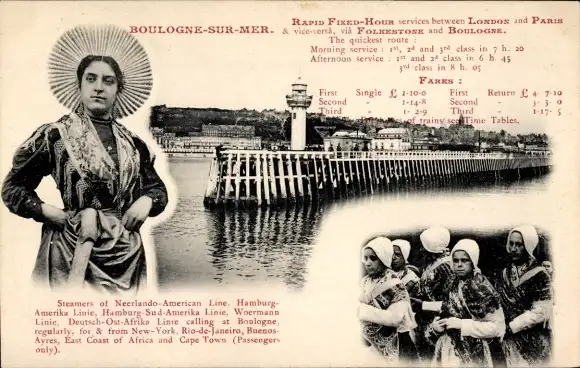 BOULOGNE-SUR-MER.
RAPID FIXED-HOUR services between LONDON and PARIS
& vice-versâ, viâ FOLKESTONE and BOULOGNE.
The quickest route :
Morning service : 1st, 2d and 3rd class in 7 h. 20
Afternoon service : 1st and 2d class in 6 h. 45
3rd class in 8 h. 05
FARES :
First Single £ 2-10-0 First Return £ 4- 7-10
Second - 1-14-8 Second - 3- 3-0
Third - 1- 2-9 Third - 1-17-5
of trains see Time Tables.
Steamers of Neerlando-American Line, Hamburg-
Amerika Linie, Hamburg-Sud-Amerika Linie, Woermann
Linie, Deutsch-Ost-Afrika Linie calling at Boulogne,
regularly, for & from New-York, Rio-de-Janeiro, Buenos-
Ayres, East Coast of Africa and Cape Town (Passenger-
only).